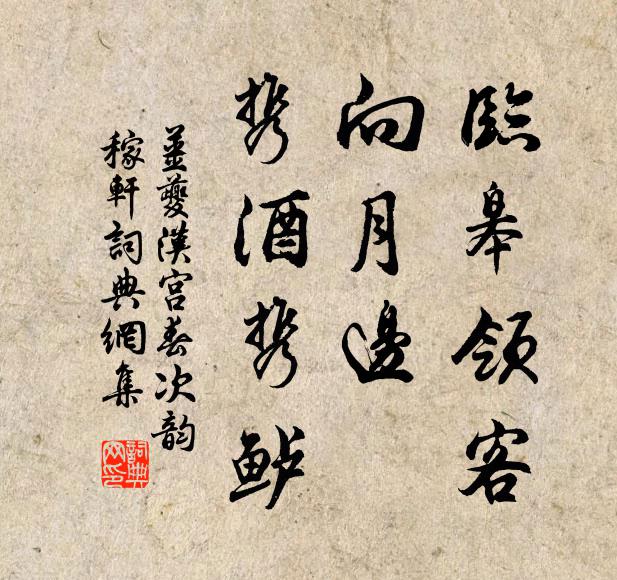 臨皋領客
向月邊
携酒携鲈
姜夔漢宮春次韵
稼軒詞典網集
詞典網印